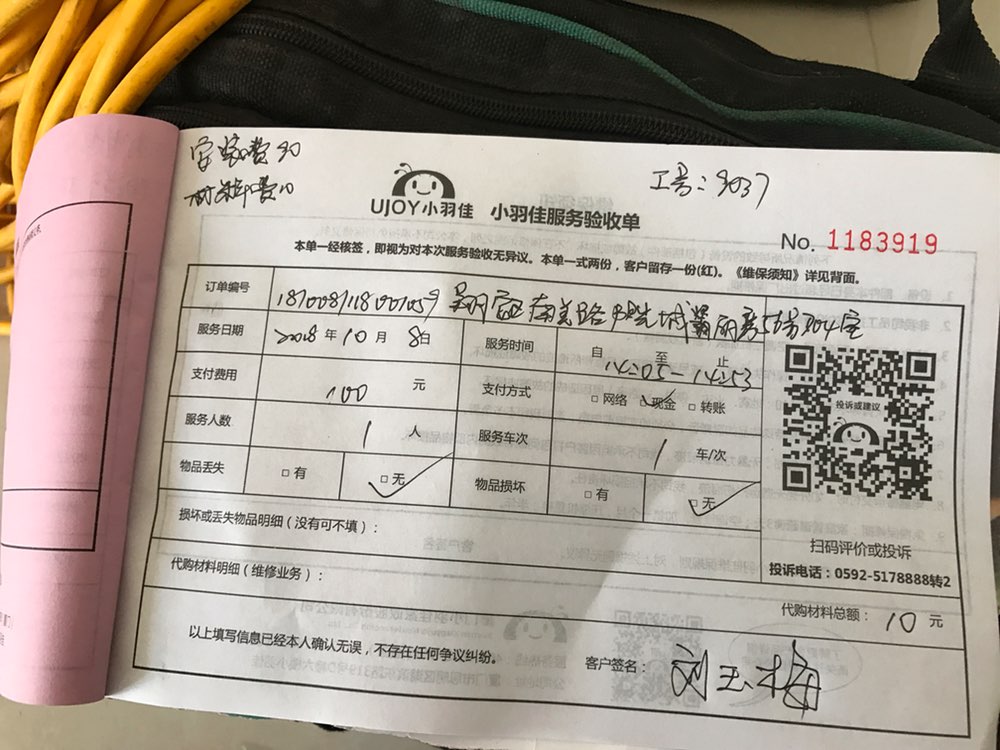 安装费90
材料费10
工号：3037
UJOY小羽佳 小羽佳服务验收单
No. 1183919
本单一经核签，即视为对本次服务验收无异议。本单一式两份，客户留存一份(红)。《维保须知》详见背面。
订单编号
南 路 城 5 304室
服务日期 2018年10月8日 服务时间 自 至 止 14:05-14:53
支付费用 100 元 支付方式 □网络 ☑现金 □转账
服务人数 1 人 服务车次 1 车/次
物品丢失 □有 □无 ✓ 物品损坏 □有 □无 ✓
投诉或建议
扫码评价或投诉
投诉电话：0592-5178888转2
损坏或丢失物品明细（没有可不填）：
代购材料明细（维修业务）：
代购材料总额： 10 元
以上填写信息已经本人确认无误，不存在任何争议纠纷。
客户签名： 刘玉梅